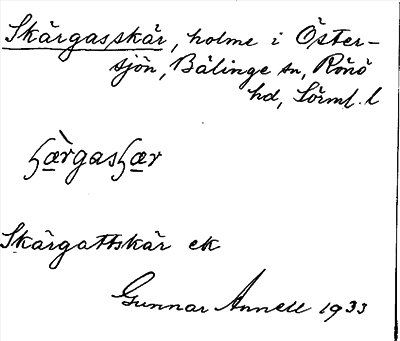 Skärgasskär, holme i Öster-
sjön, Bälinge sn, Rönö
hd, Sörml. l
ꜧæ̀rgasꜧær
Skärgattskär ek
Gunnar Annell 1933